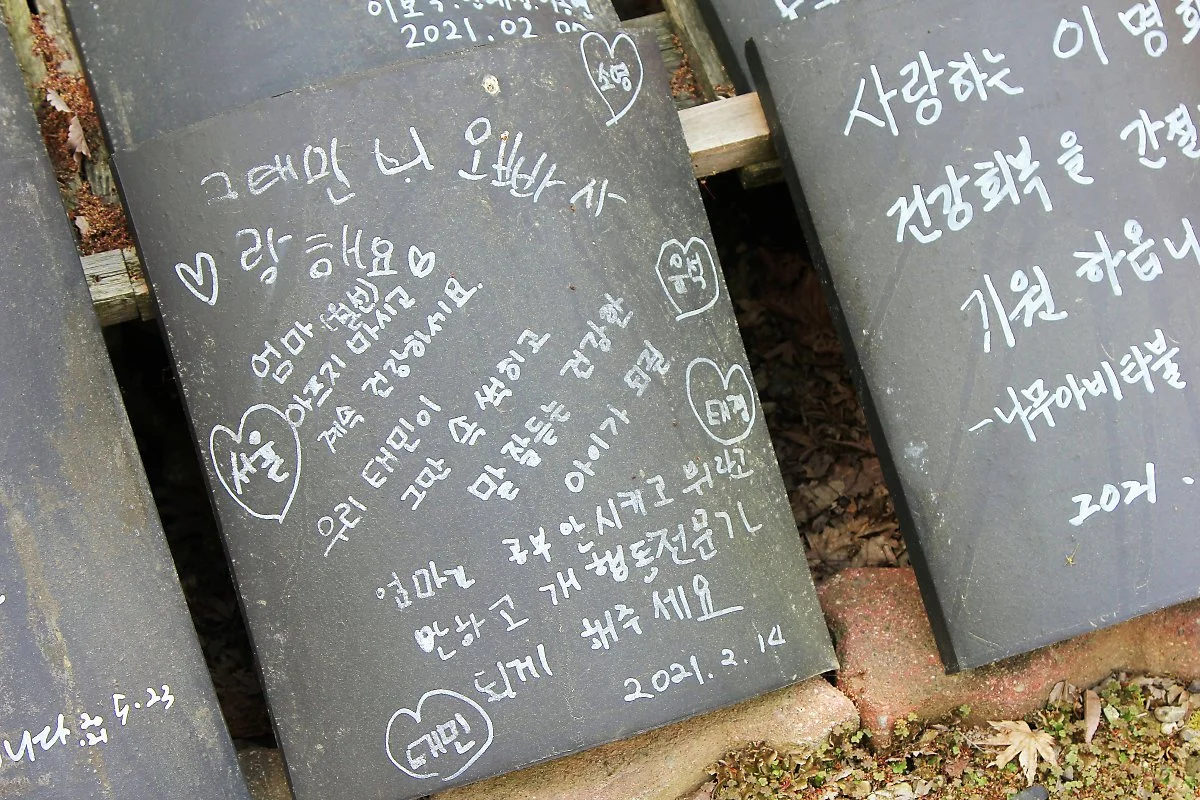 2021.02
소영
그태민 너 오빠 사
랑 해요
엄마
아프지 마시고
계속 건강하세요.
유진
태경
서윤
우리 태민이
그만 속 썩이고
말 잘듣는 건강한
아이가 되길
엄마는 공부 안 시키고 뭐라고
안하고 개 행동전문가
되게 해주세요
2021. 2. 14
태민
사랑하는 이 명희
건강회복을 간절
기원 하옵니
-나무아비타불
2021 .
니다 2021 5.23